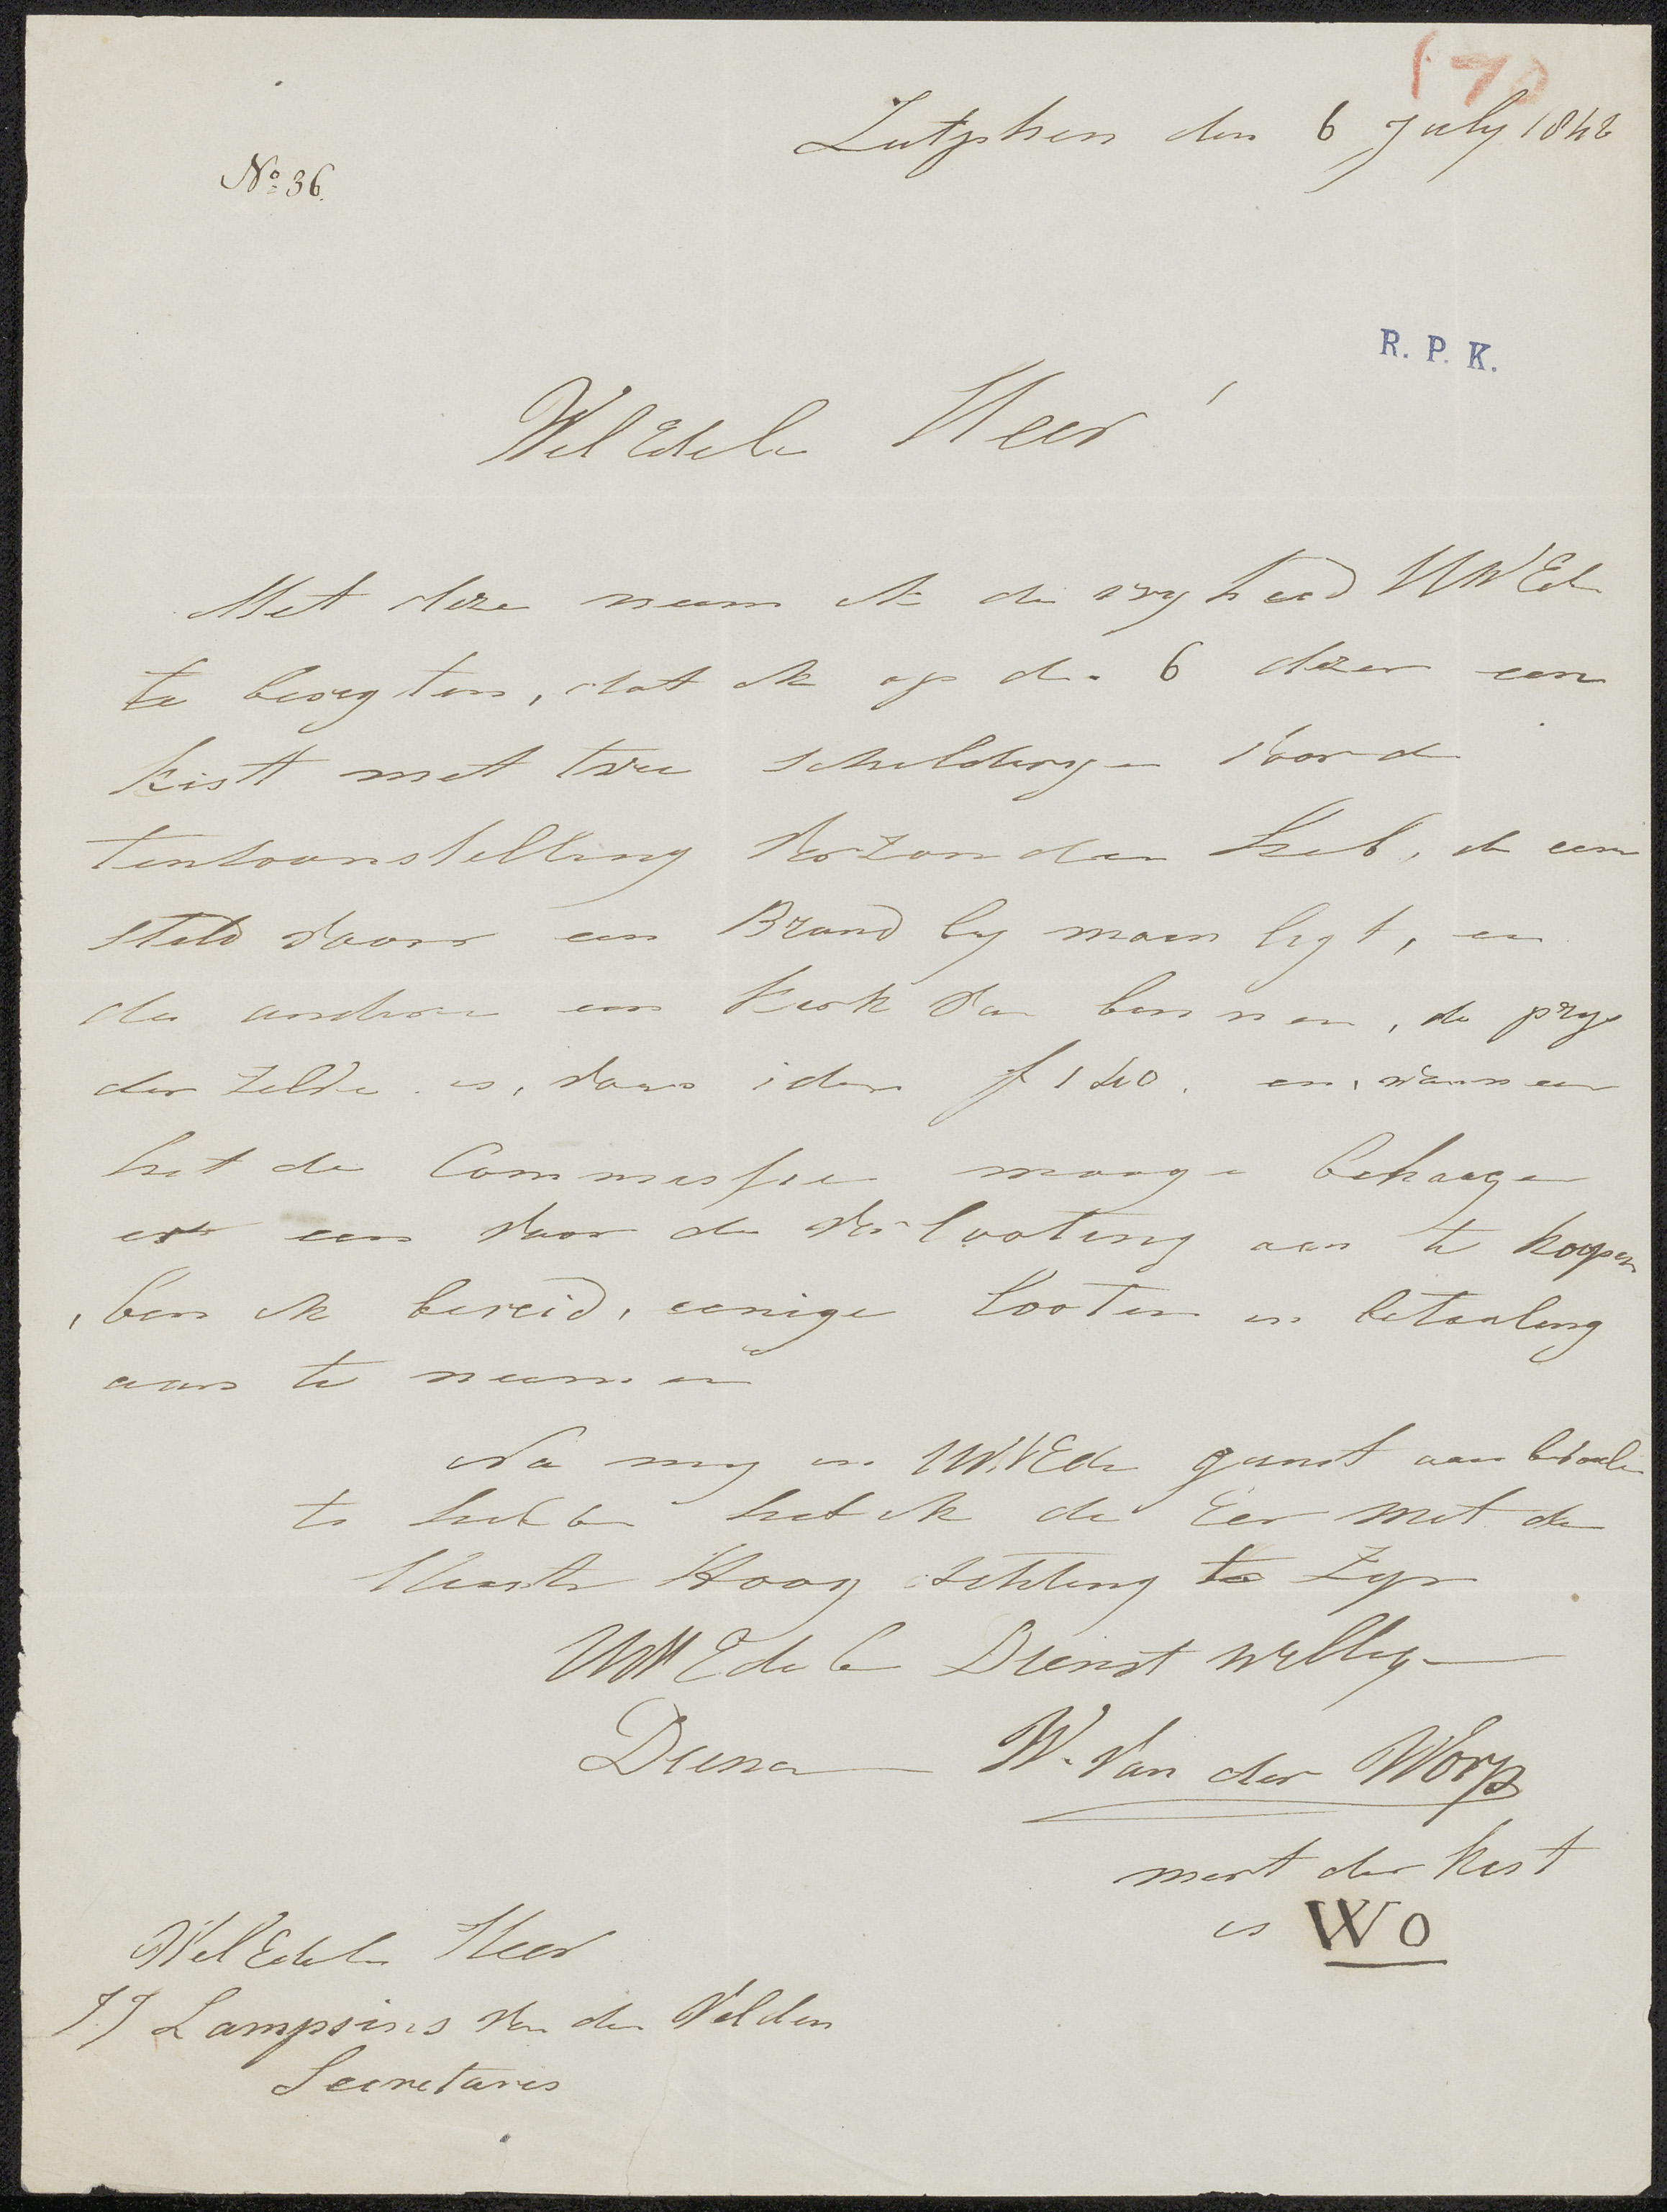 170
Zutphen den 6 July 1842
No 36.
R. P. K.
Wel Edele Heer
Met deze neem ik de vryheid UWEd
te berigten, dat ik op de 6 dezer een
kist met twee schilderyen voor de
tentoonstelling verzonden heb, de een
steld voor een Brand by maan ligt, en
de andere een kerk van binnen, de prys
der zelve is, voor ider f 140. en, wanneer
het de Commissie mooge behaage
er een voor de verlooting aan te koopen
, ben ik bereid, eenige looten in betaaling
aan te neemen
Na my in UWEde gunst aan bevoolen
te hebben heb ik de Eer met de
Meeste Hoog achting te zyn
UWEdele Dienst willige
Diena W. van der Worp
mert der kist
is WO
Wel Edele Heer
JJ Lampsins van den Velden
Secretaris